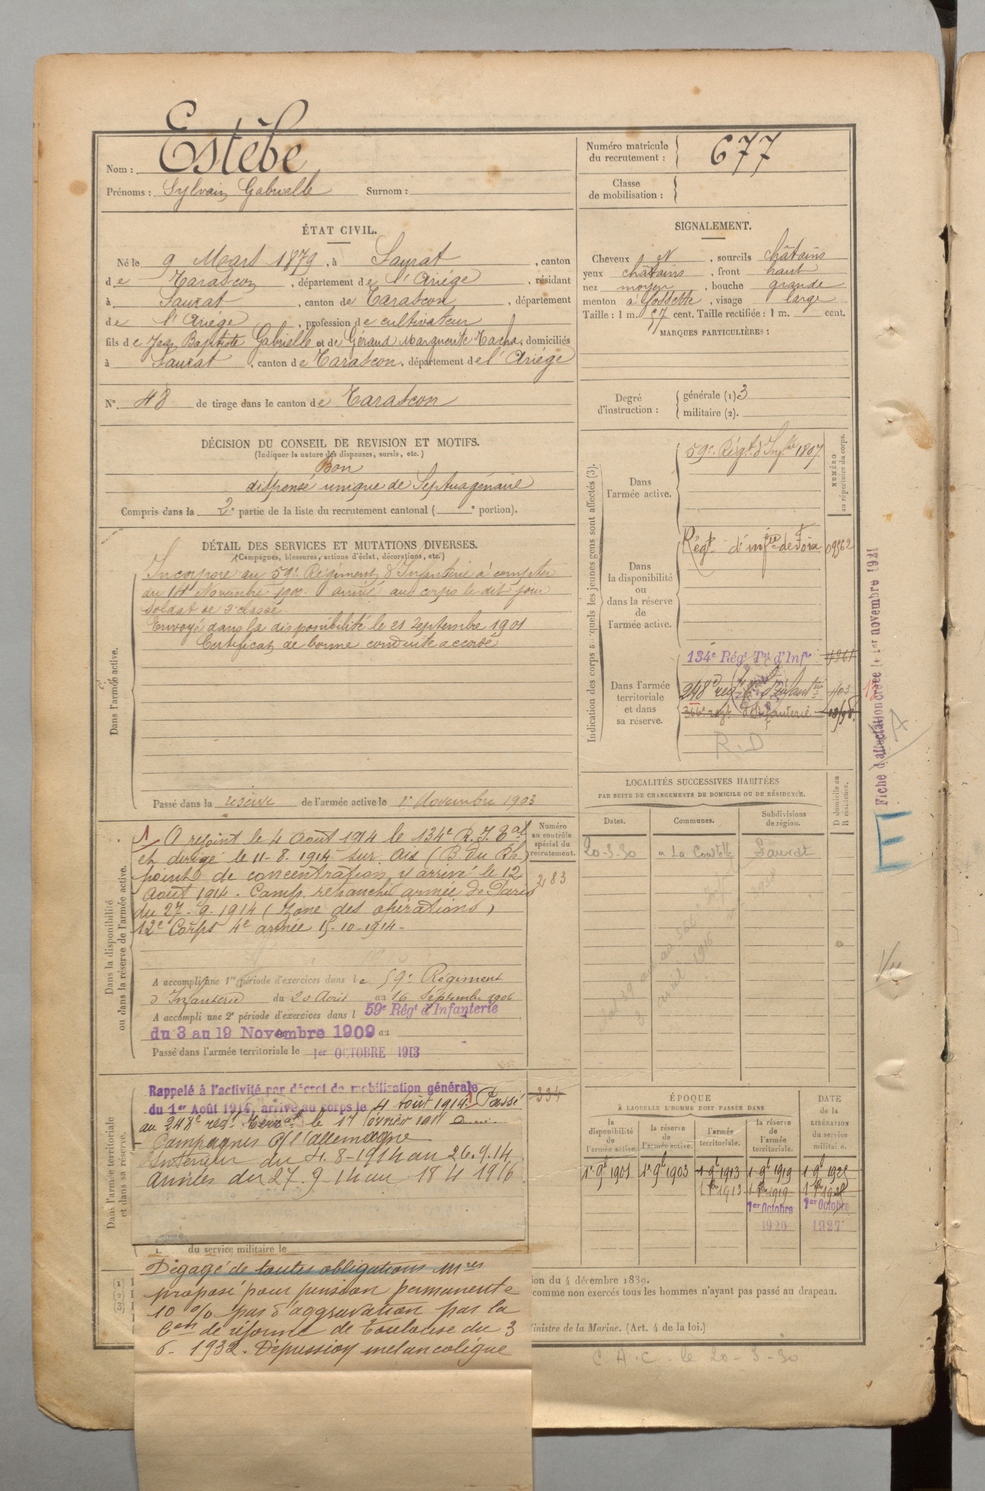 Nom : Estèbe
Prénoms : Sylvain Gabrielle Surnom :
Numéro matricule du recrutement : 677
Classe de mobilisation :
ÉTAT CIVIL.
Né le 9 Mars 1879, à Saurat, canton
de Tarascon, département de l'Ariège, résidant
à Saurat, canton de Tarascon, département
de l'Ariège, profession de cultivateur
fils de Jean Baptiste Gabrielle et de Géraud Marguerite, domiciliés
à Saurat, canton de Tarascon, département de l'Ariège
N° 48 de tirage dans le canton de Tarascon
DÉCISION DU CONSEIL DE REVISION ET MOTIFS.
(Indiquer la nature des dispenses, sursis, etc.)
Bon
dispensé unique de Septuagénaire
Compris dans la 2e partie de la liste du recrutement cantonal ( e portion).
DÉTAIL DES SERVICES ET MUTATIONS DIVERSES.
(Campagnes, blessures, actions d'éclat, décorations, etc.)
Dans l'armée active.
Incorporé au 59e Régiment d'Infanterie à compter
du 14 Novembre 1900. arrivé au corps le dit jour
soldat de 2e classe
Envoyé dans la disponibilité le 21 Septembre 1901
Certificat de bonne conduite accordé
Passé dans la réserve de l'armée active le 1er Novembre 1903
Dans la disponibilité ou dans la réserve de l'armée active.
Numéro au contrôle spécial du recrutement.
283
A rejoint le 4 Août 1914 le 134e R.I. Eal
et dirigé le 11-8-1914 sur Aix (B. du Rh.)
point de concentration, y arrivé le 12
Août 1914. Camp retranché armée de Paris
du 27-9-1914 (Zone des opérations)
12e Corps 4e armée 15-10-1914.
A accompli une 1re période d'exercices dans le 59e Régiment
d'Infanterie du 20 Août au 16 Septembre 1906
A accompli une 2e période d'exercices dans l 59e Régt d'Infanterie
du 3 au 19 Novembre 1909 au
Passé dans l'armée territoriale le 1er OCTOBRE 1913
Dans l'armée territoriale et dans sa réserve.
Rappelé à l'activité par décret de mobilisation générale
du 1er Août 1914, arrivé au corps le 4 Août 1914. Passé
334
au 248e régt le 17 février 1911
Campagnes c/ l'allemagne
Intérieur du 4-8-1914 au 26.9.14
armées du 27.9.14 au 18 4 1916
du service militaire le
Dégagé de toutes obligations Mres
proposé pour pension permanente
10 % pas d'aggravation par la
Con de réforme de Toulouse du 3
6- 1932. Dépression mélancolique
SIGNALEMENT.
Cheveux N, sourcils châtains
yeux châtains, front haut
nez moyen, bouche grande
menton à fossette, visage large
Taille : 1 m. 57 cent. Taille rectifiée : 1 m. cent.
MARQUES PARTICULIÈRES :
Degré d'instruction :
générale (1) 3
militaire (2).
Indication des corps auxquels les jeunes gens sont affectés (3).
NUMÉRO au répertoire du corps.
Dans l'armée active.
59e Régt d'Infrie 1807
Dans la disponibilité ou dans la réserve de l'armée active.
Régt d'infrie de Foix
134e Régt Tal d'Infie
Dans l'armée territoriale et dans sa réserve.
248e régt d'Infanterie
366e régt d'Infanterie
R.D
LOCALITÉS SUCCESSIVES HABITÉES
PAR SUITE DE CHANGEMENTS DE DOMICILE OU DE RÉSIDENCE.
Dates. Communes. Subdivisions de région. D domicile ou R résidence.
20-3-30 Saurat
ÉPOQUE
À LAQUELLE L'HOMME DOIT PASSER DANS
la disponibilité de l'armée active. la réserve de l'armée active. l'armée territoriale. la réserve de l'armée territoriale.
DATE de la LIBÉRATION du service militaire.
1er 9bre 1901 1er 9bre 1903 1 9bre 1913 1 9bre 1919 1 9bre 1925
1er Octobre 1920 1er Octobre 1927
ion du 4 décembre 1889.
comme non exercés tous les hommes n'ayant pas passé au drapeau.
inistre de la Marine. (Art. 4 de la loi.)
C.A.C. le 20-3-30
Fiche d'affectation créée le 1er novembre 1921
E